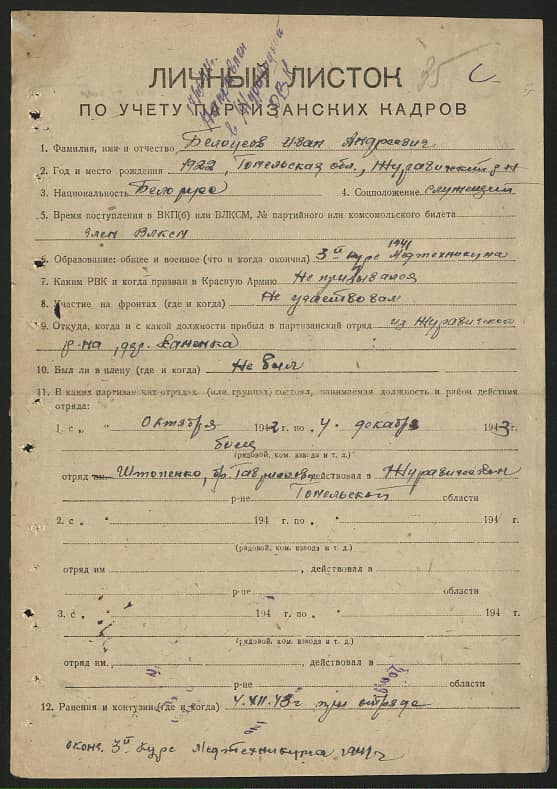 35
ЛИЧНЫЙ ЛИСТОК
ПО УЧЕТУ ПАРТИЗАНСКИХ КАДРОВ
1. Фамилия, имя и отчество Белоусов Иван Андреевич
2. Год и место рождения 1922, Гомельская обл., Журавичский р-н
3. Национальность Белорус 4. Соцположение служащий
5. Время поступления в ВКП(б) или ВЛКСМ, № партийного или комсомольского билета
член Влксм
6. Образование: общее и военное (что и когда окончил) 3й курс 1941 Медтехникума
7. Каким РВК и когда призван в Красную Армию Не призывался
8. Участие на фронтах (где и когда) Не участвовал
9. Откуда, когда и с какой должности прибыл в партизанский отряд из Журавичского
р-на, дер.
10. Был ли в плену (где и когда) Не был
11. В каких партизанских отрядах (или группах) состоял, занимаемая должность и район действия
отряда:
1. с „ " Октября 1942 г. по „ 4 декабря 1943 г.
боец
(рядовой, ком. взвода и т. д.)
отряд им Штопенко, бр. действовал в Журавичском
р-не Гомельской области
2. с „ " 194 г. по „ " 194 г.
(рядовой, ком. взвода и т. д.)
отряд им , действовал в
р-не области
3. с „ " 194 г. по „ " 194 г.
(рядовой, ком. взвода и т. д.)
отряд им. , действовал в
р-не области
12. Ранения и контузии (где и когда) 4.XII.43 г при отряде
оконч. 3й курс Медтехникума 1941 г